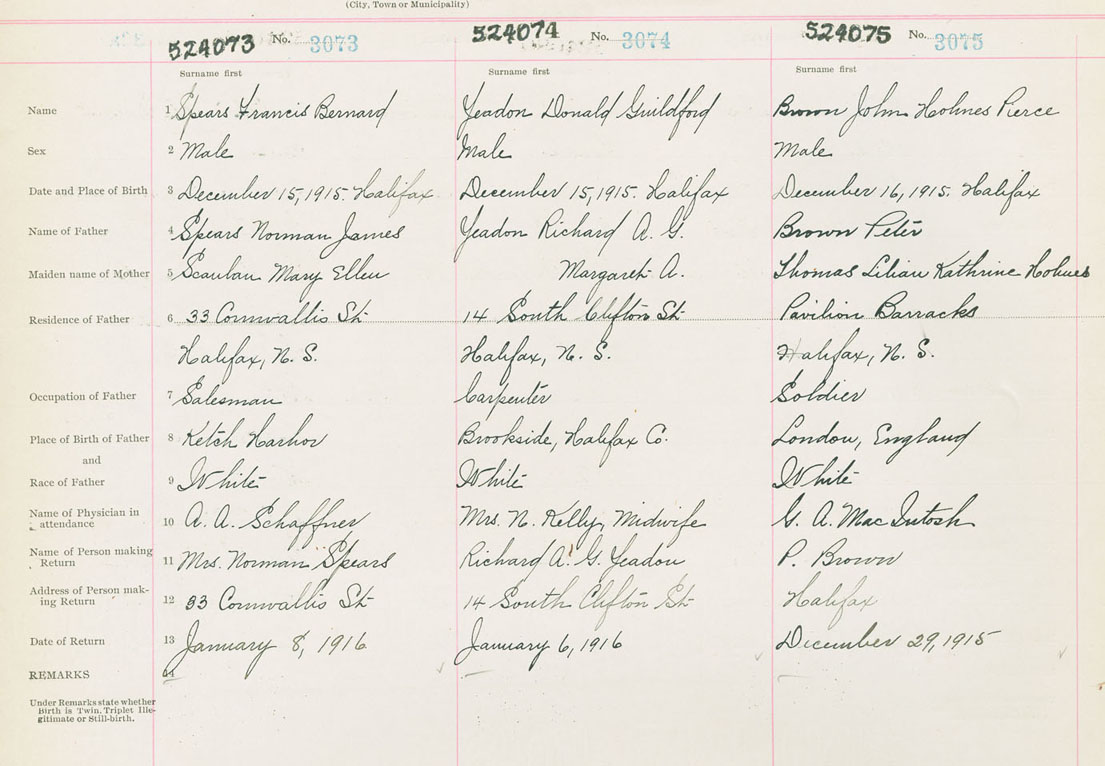 (City, Town or Municipality)
524073 No. 3073 524074 No. 3074 524075 No. 3075
Surname first Surname first Surname first
Name 1 Spears Francis Bernard Yeadon Donald Guildford Brown John Hohnes Pierce
Sex 2 Male Male Male
Date and Place of Birth 3 December 15, 1915. Halifax December 15, 1915. Halifax December 16, 1915. Halifax
Name of Father 4 Spears Norman James Yeadon Richard A. G. Brown Peter
Maiden name of Mother 5 Scanlan Mary Ellen Margaret A. Thomas Lilian Kathrine Hohnes
Residence of Father 6 33 Cornwallis St 14 South Clifton St Pavilion Barracks
Halifax, N. S. Halifax, N. S. Halifax, N. S.
Occupation of Father 7 Salesman Carpenter Soldier
Place of Birth of Father 8 Ketch Harbor Brookside, Halifax Co. London, England
and
Race of Father 9 White White White
Name of Physician in
attendance 10 A. A. Schaffner Mrs. N. Kelly, Midwife G. A. MacIntosh
Name of Person making
Return 11 Mrs. Norman Spears Richard A. G. Yeadon P. Brown
Address of Person mak-
ing Return 12 33 Cornwallis St 14 South Clifton St Halifax
Date of Return 13 January 8, 1916 January 6, 1916 December 29, 1915
REMARKS 14
Under Remarks state whether
Birth is Twin. Triplet Ille-
gitimate or Still-birth.